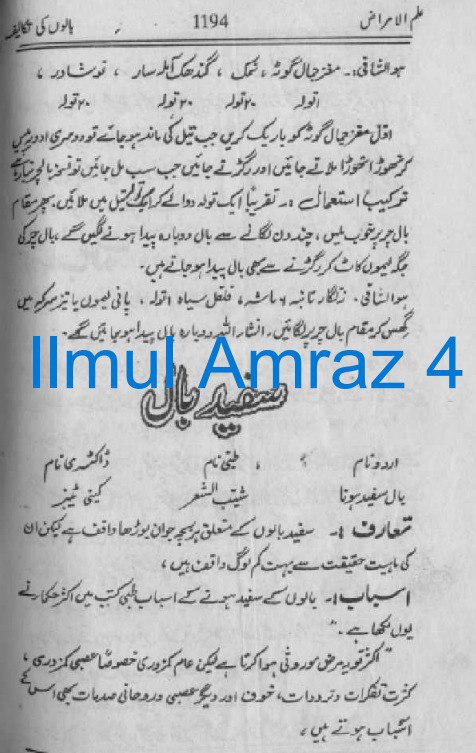 علم الامراض 1194 بالوں کی تکالیف
ہوالشافی:۔ مغز جمال گوٹہ، نمک، گندھک آملہ سار، نوشادر،
اتولہ ۲۰تولہ ۲۰تولہ ۲۰تولہ
اوّل مغز جمال گوٹہ کو باریک کریں جب تیل کی مانند ہو جائے تو دوسری ادویہ پیس
کر تھوڑا تھوڑا ملاتے جائیں اور رگڑتے جائیں جب سب مل جائیں تو نسخہ بالچر تیار ہے
ترکیب استعمال:۔ تقریباً ایک تولہ دوا لے کر تیل میں ملائیں۔ پھر مقام
بال چر پر خوب ملیں، چند دن لگانے سے بال دوبارہ پیدا ہونے لگیں گے، بال چر کی
جگہ لیموں کاٹ کر رگڑنے سے بھی بال پیدا ہو جاتے ہیں۔
ہوالشافی۔ زنگار تانبہ ۶ ماشہ، فلفل سیاہ اتولہ، پانی لیموں یا تیز سرکہ میں
گھس کر مقام بال چر پر لگائیں۔ انشاء اللہ دوبارہ بال پیدا ہو جائیں گے۔
Ilmul Amraz 4
سفید بال
اردو نام طبی نام ڈاکٹری نام
بال سفید ہونا شیب الشعر کینی ٹیز
تعارف:۔ سفید بالوں کے متعلق ہر بچہ جوان بوڑھا واقف ہے لیکن ان
کی ماہیت حقیقت سے بہت کم لوگ واقف ہیں،
اسباب:۔ بالوں کے سفید ہونے کے اسباب طبی کتب میں اکثر حکماء نے
یوں لکھا ہے۔"
"اکثر تو یہ مرض موروثی ہوا کرتا ہے لیکن عام کمزوری خصوصاً عصبی کمزوری،
کثرت تفکرات و ترددات، خوف اور دیگر عصبی و روحانی صدمات بھی اس کے
اسباب ہوتے ہیں،